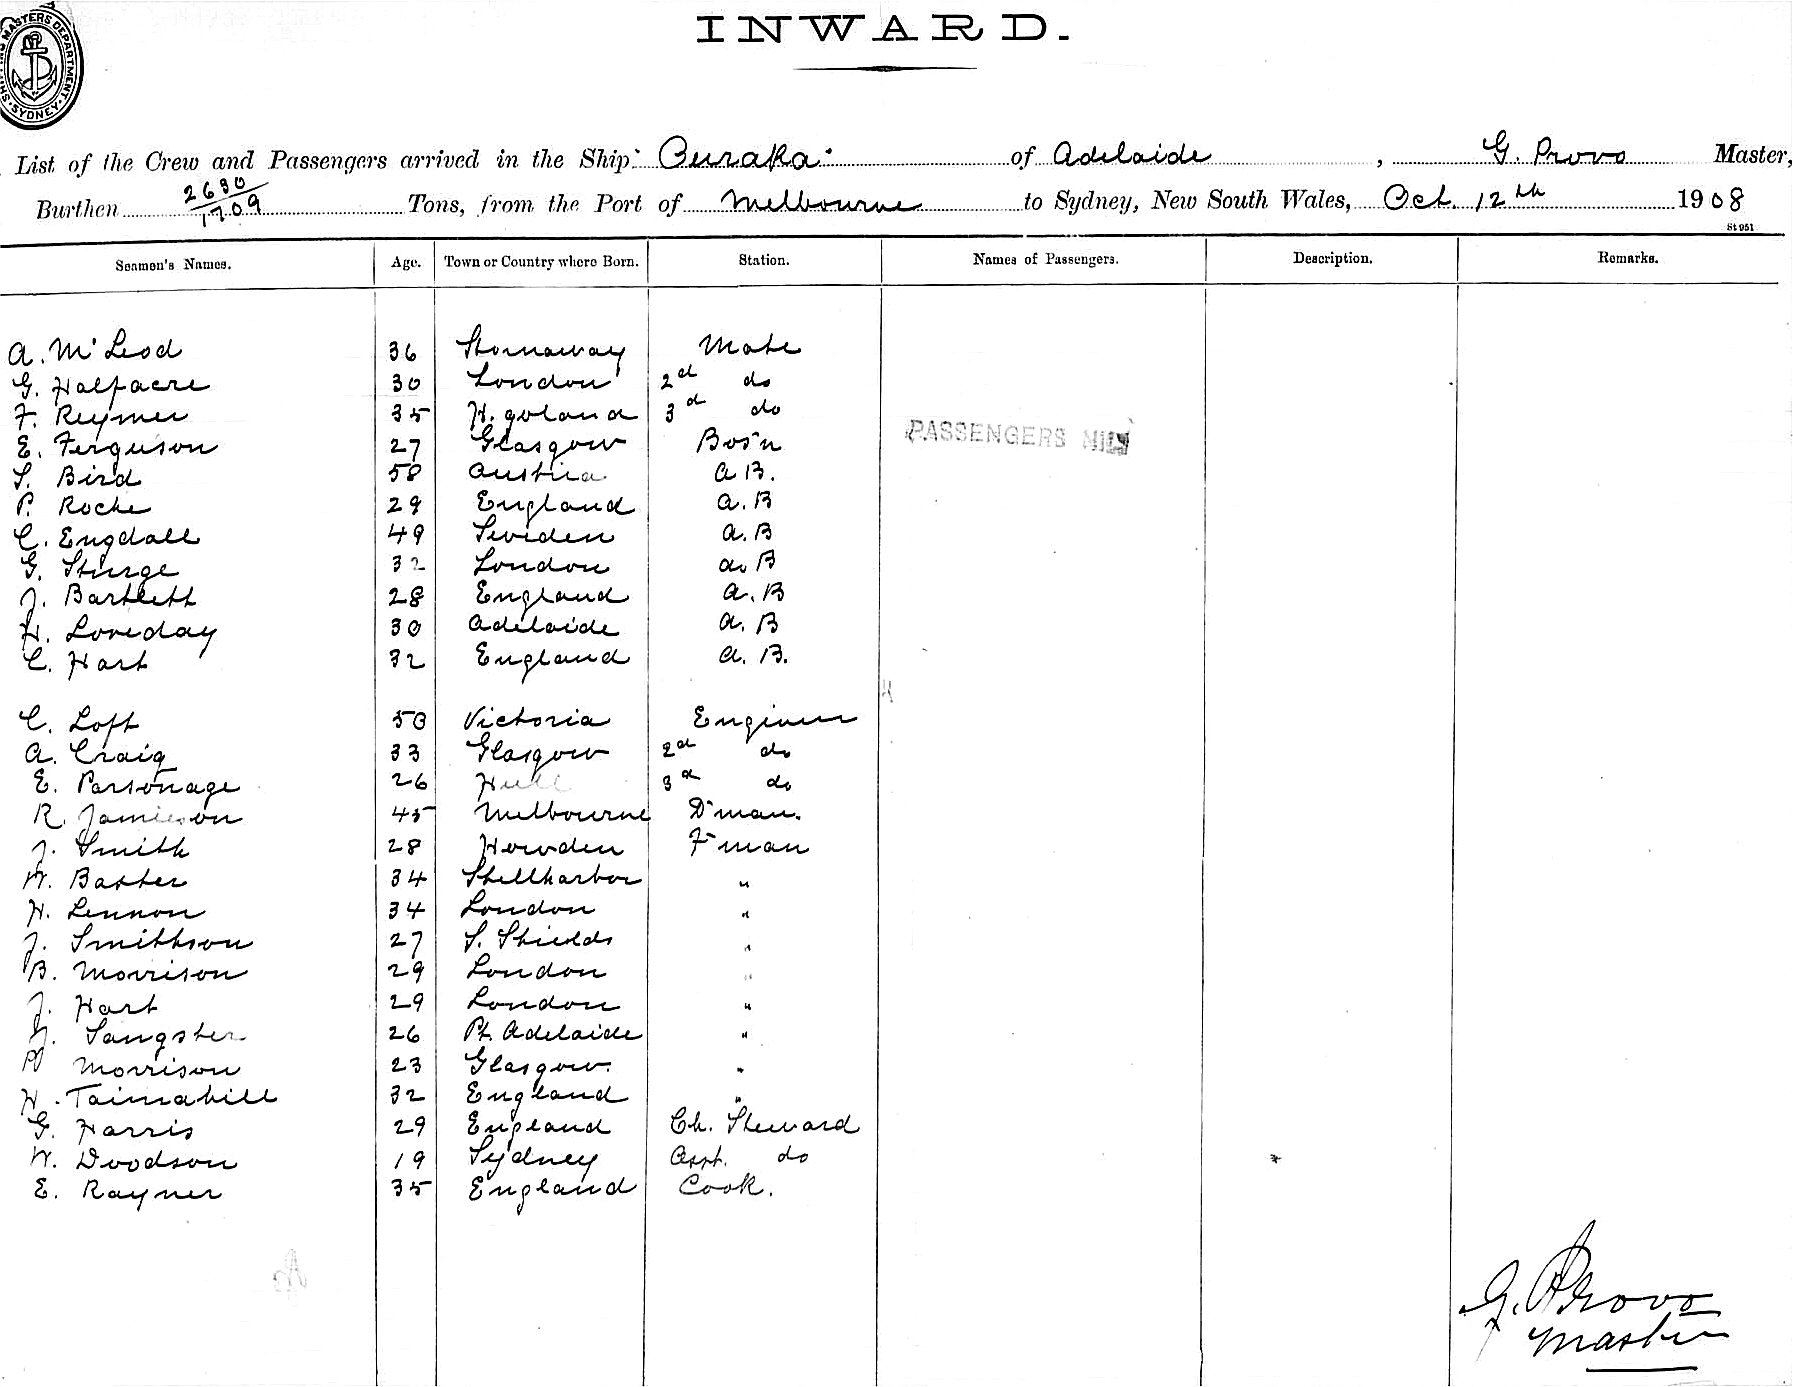 SHIPPING MASTERS DEPARTMENT. SYDNEY.
INWARD.
List of the Crew and Passengers arrived in the Ship of Adelaide, G. Provo Master,
Burthen 2630/1709 Tons, from the Port of Melbourne to Sydney, New South Wales, Oct. 12th 1908
St 951
Seamen's Names. Age. Town or Country where Born. Station. Names of Passengers. Description. Remarks.
A. McLeod 36 Stornaway Mate
G. Halfacre 30 London 2nd do
F. Reymer 35 H. goland 3rd do
E. Ferguson 27 Glasgow Bos'n
PASSENGERS NIL
S. Bird 58 Austria A.B.
P. Roche 29 England A.B
C. Engdall 49 Sweden A.B
G. Sturge 32 London A.B
J. Bartlett 28 England A.B
H. Loveday 30 Adelaide A.B
C. Hart 32 England A.B.
C. Loft 50 Victoria Engineer
A. Craig 33 Glasgow 2nd do
E. Parsonage 26 Hull 3rd do
R. Jamieson 45 Melbourne D'man.
J. Smith 28 Howden F'man
W. Baxter 34 Shellharbor "
H. Lennon 34 London "
J. Smithson 27 S. Shields "
B. Morrison 29 London "
J. Hart 29 London "
Sangster 26 Pt. Adelaide "
Morrison 23 Glasgow. "
H. Tainahill 32 England "
G. Harris 29 England Ch. Steward
W. Doodson 19 Sydney Asst. do
E. Rayner 35 England Cook.
G. Provo
Master